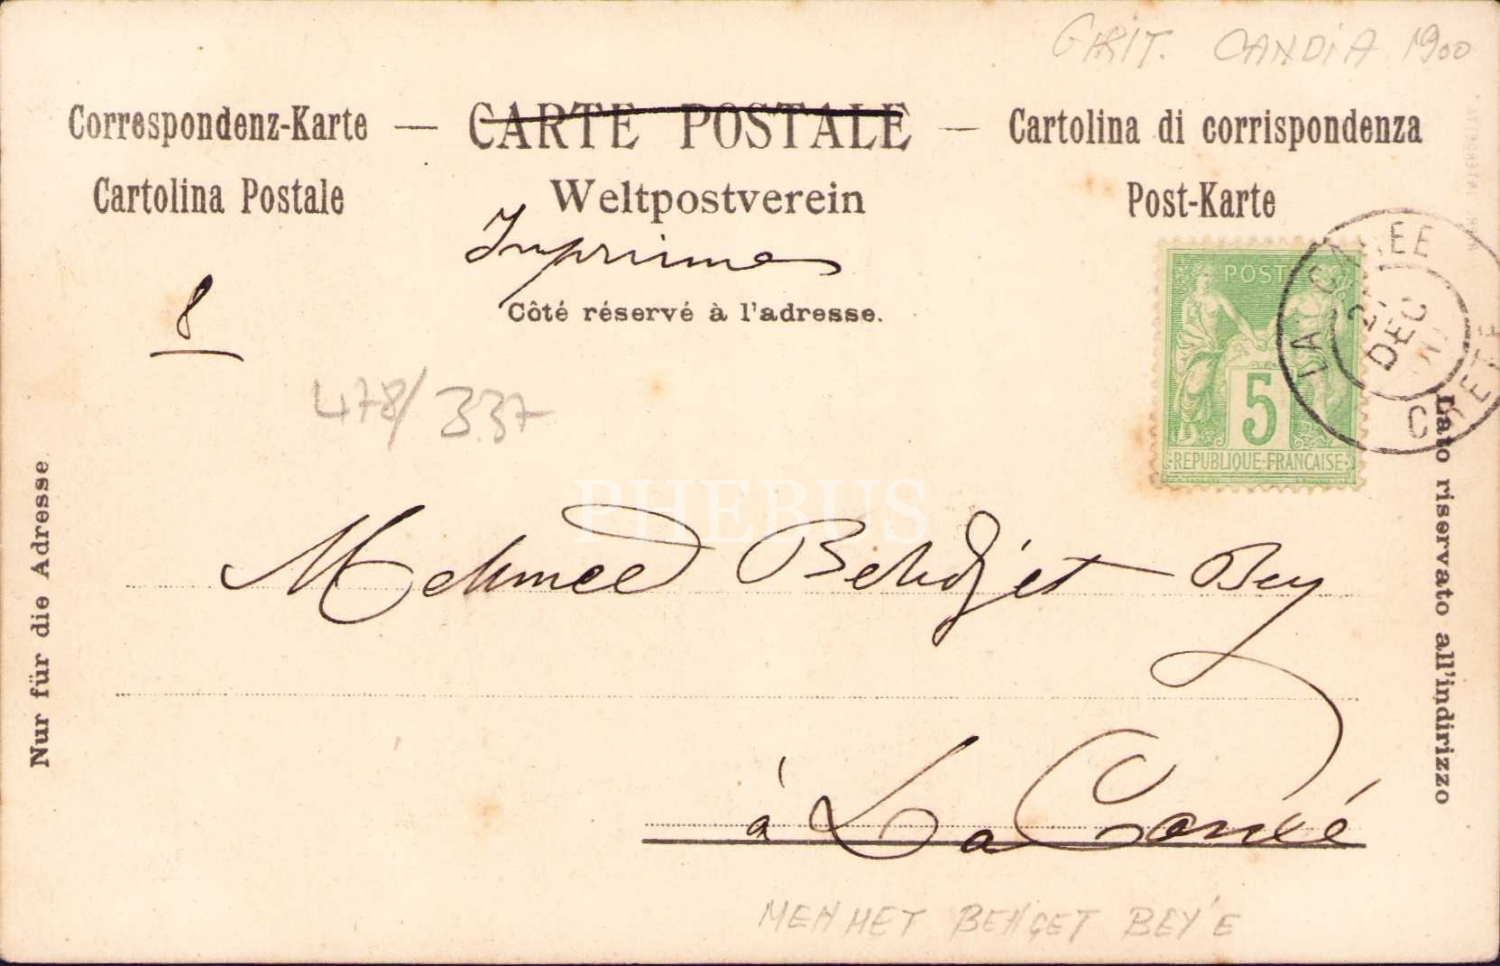 GİRİT. CANDİA 1900
Correspondenz-Karte — CARTE POSTALE — Cartolina di corrispondenza
Cartolina Postale Weltpostverein Post-Karte
Imprimes
Côté réservé à l'adresse.
8
478/337
POSTES
5
REPUBLIQUE FRANÇAISE
LA CANEE
DEC
CRETE
Nur für die Adresse
Lato riservato all'indirizzo
PHEBUS
Mehmed Behdjet Bey
à La Canée
MENHET BEHÇET BEY'E